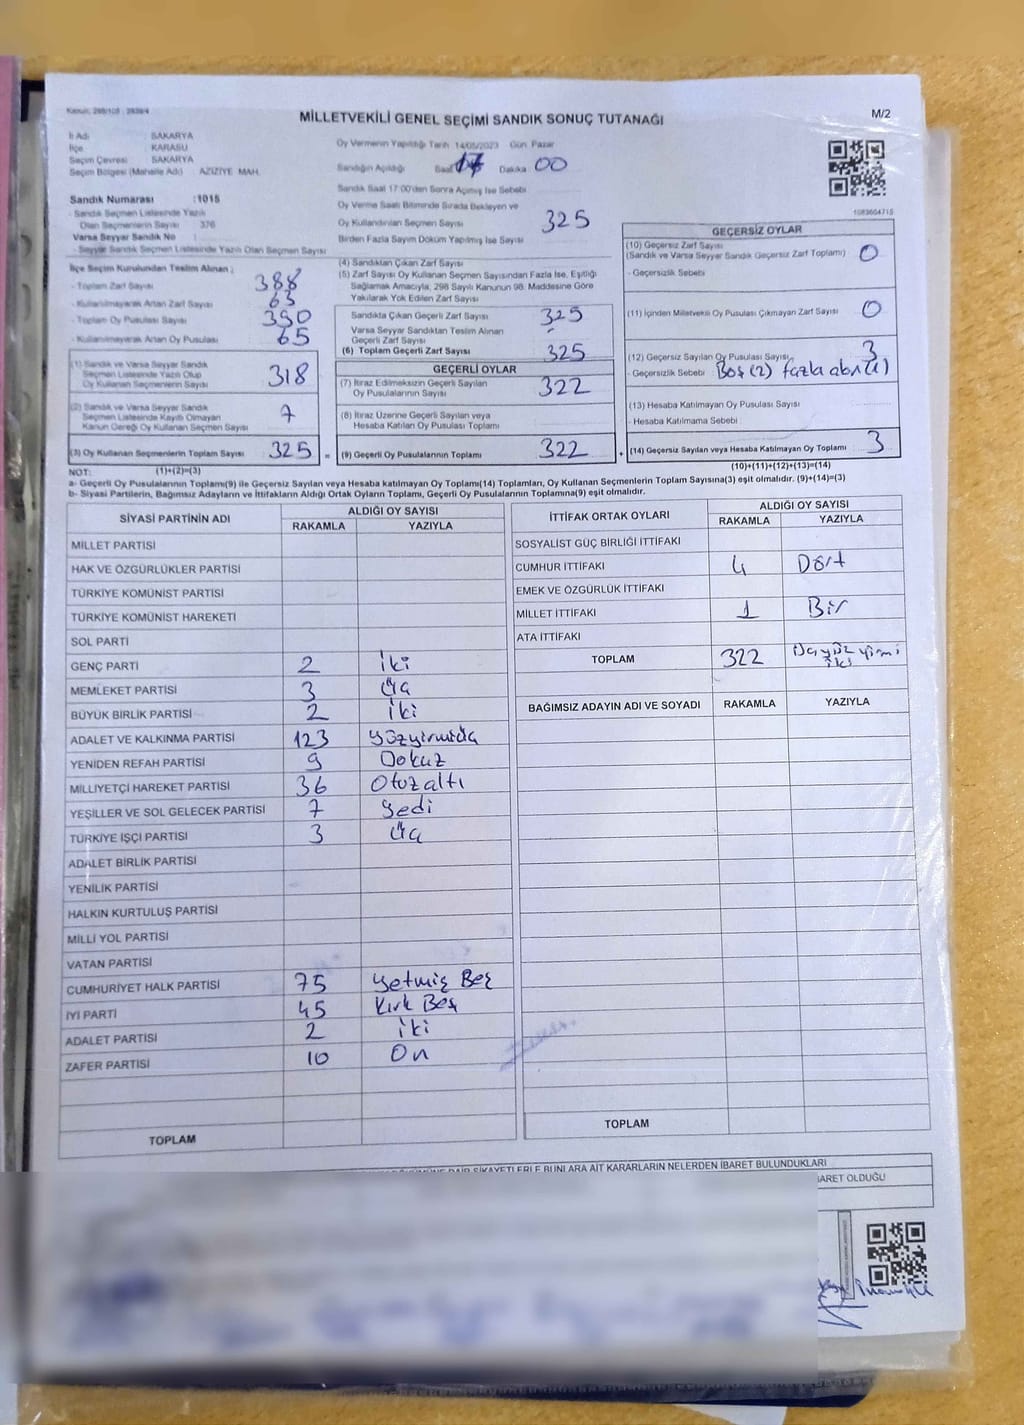 Kanun: 298/105 - 2839/4
MİLLETVEKİLİ GENEL SEÇİMİ SANDIK SONUÇ TUTANAĞI
M/2
İl Adı : SAKARYA
İlçe : KARASU
Seçim Çevresi : SAKARYA
Seçim Bölgesi (Mahalle Adı) : AZİZİYE MAH.
Oy Vermenin Yapıldığı Tarih 14/05/2023 Gün Pazar
Sandığın Açıldığı Saat 17 Dakika 00
Sandık Saat 17:00'den Sonra Açılmış İse Sebebi
Oy Verme Saati Bitiminde Sırada Bekleyen ve
Oy Kullandırılan Seçmen Sayısı 325
Birden Fazla Sayım Döküm Yapılmış İse Sayısı
1083604715
Sandık Numarası :1015
- Sandık Seçmen Listesinde Yazılı
Olan Seçmenlerin Sayısı 376
Varsa Seyyar Sandık No :
- Seyyar Sandık Seçmen Listesinde Yazılı Olan Seçmen Sayısı
İlçe Seçim Kurulundan Teslim Alınan ;
- Toplam Zarf Sayısı 388
- Kullanılmayarak Artan Zarf Sayısı 63
- Toplam Oy Pusulası Sayısı 390
- Kullanılmayarak Artan Oy Pusulası 65
(1) Sandık ve Varsa Seyyar Sandık
Seçmen Listesinde Yazılı Olup
Oy Kullanan Seçmenlerin Sayısı 318
(2) Sandık ve Varsa Seyyar Sandık
Seçmen Listesinde Kayıtlı Olmayan
Kanun Gereği Oy Kullanan Seçmen Sayısı 7
(3) Oy Kullanan Seçmenlerin Toplam Sayısı 325 =
(4) Sandıktan Çıkan Zarf Sayısı
(5) Zarf Sayısı Oy Kullanan Seçmen Sayısından Fazla İse, Eşitliği
Sağlamak Amacıyla, 298 Sayılı Kanunun 98. Maddesine Göre
Yakılarak Yok Edilen Zarf Sayısı
Sandıkta Çıkan Geçerli Zarf Sayısı 325
Varsa Seyyar Sandıktan Teslim Alınan
Geçerli Zarf Sayısı -
(6) Toplam Geçerli Zarf Sayısı 325
GEÇERLİ OYLAR
(7) İtiraz Edilmeksizin Geçerli Sayılan
Oy Pusulalarının Sayısı 322
(8) İtiraz Üzerine Geçerli Sayılan veya
Hesaba Katılan Oy Pusulası Toplamı
(9) Geçerli Oy Pusulalarının Toplamı 322 +
GEÇERSİZ OYLAR
(10) Geçersiz Zarf Sayısı
(Sandık ve Varsa Seyyar Sandık Geçersiz Zarf Toplamı) 0
- Geçersizlik Sebebi
(11) İçinden Milletvekili Oy Pusulası Çıkmayan Zarf Sayısı 0
(12) Geçersiz Sayılan Oy Pusulası Sayısı 3
- Geçersizlik Sebebi Boş (2) fazla
(13) Hesaba Katılmayan Oy Pusulası Sayısı
- Hesaba Katılmama Sebebi
(14) Geçersiz Sayılan veya Hesaba Katılmayan Oy Toplamı 3
NOT: (1)+(2)=(3)
(10)+(11)+(12)+(13)=(14)
a- Geçerli Oy Pusulalarının Toplamı(9) ile Geçersiz Sayılan veya Hesaba Katılmayan Oy Toplamı(14) Toplamları, Oy Kullanan Seçmenlerin Toplam Sayısına(3) eşit olmalıdır. (9)+(14)=(3)
b- Siyasi Partilerin, Bağımsız Adayların ve İttifakların Aldığı Ortak Oyların Toplamı, Geçerli Oy Pusulalarının Toplamına(9) eşit olmalıdır.
SİYASİ PARTİNİN ADI
ALDIĞI OY SAYISI
RAKAMLA YAZIYLA
MİLLET PARTİSİ
HAK VE ÖZGÜRLÜKLER PARTİSİ
TÜRKİYE KOMÜNİST PARTİSİ
TÜRKİYE KOMÜNİST HAREKETİ
SOL PARTİ
GENÇ PARTİ 2 İki
MEMLEKET PARTİSİ 3 Üç
BÜYÜK BİRLİK PARTİSİ 2 İki
ADALET VE KALKINMA PARTİSİ 123 Yüzyirmiüç
YENİDEN REFAH PARTİSİ 9 Dokuz
MİLLİYETÇİ HAREKET PARTİSİ 36 Otuzaltı
YEŞİLLER VE SOL GELECEK PARTİSİ 7 Yedi
TÜRKİYE İŞÇİ PARTİSİ 3 Üç
ADALET BİRLİK PARTİSİ
YENİLİK PARTİSİ
HALKIN KURTULUŞ PARTİSİ
MİLLİ YOL PARTİSİ
VATAN PARTİSİ
CUMHURİYET HALK PARTİSİ 75 Yetmiş Beş
İYİ PARTİ 45 Kırk Beş
ADALET PARTİSİ 2 İki
ZAFER PARTİSİ 10 On
TOPLAM
İTTİFAK ORTAK OYLARI
ALDIĞI OY SAYISI
RAKAMLA YAZIYLA
SOSYALİST GÜÇ BİRLİĞİ İTTİFAKI
CUMHUR İTTİFAKI 4 Dört
EMEK VE ÖZGÜRLÜK İTTİFAKI
MİLLET İTTİFAKI 1 Bir
ATA İTTİFAKI
TOPLAM 322
BAĞIMSIZ ADAYIN ADI VE SOYADI RAKAMLA YAZIYLA
TOPLAM
ŞİKAYETLERLE BUNLARA AİT KARARLARIN NELERDEN İBARET BULUNDUKLARI
İBARET OLDUĞU